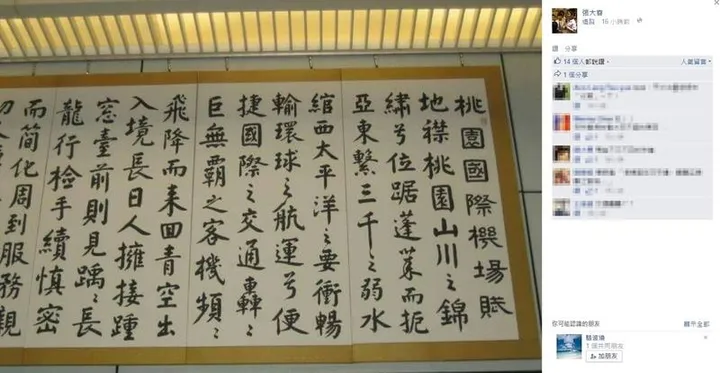 桃園國際機場賦
地襟桃園山川之錦
繡兮位踞蓬萊而扼
亞東繫三千之弱水
綰西太平洋之要衝暢
輸環球之航運兮便
捷國際之交通轟〻
巨無霸之客機頻〻
飛降而來回青空出
入境長日人擁接踵
窓臺前則見踽〻長
龍行檢手續慎密
而簡化周到服務親
張大春
追蹤 · 16 小時前
讚 分享
14 個人都說讚。 人氣留言
1 個分享
你可能認識的朋友 顯示全部
1 個共同朋友
加朋友